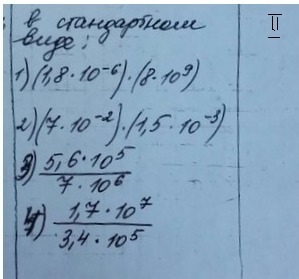 в стандартном
виде:
1) (1,8 · 10⁻⁶) · (8 · 10⁹)
2) (7 · 10⁻²) · (1,5 · 10⁻³)
3) 5,6 · 10⁵ / 7 · 10⁶
4) 1,7 · 10⁷ / 3,4 · 10⁵